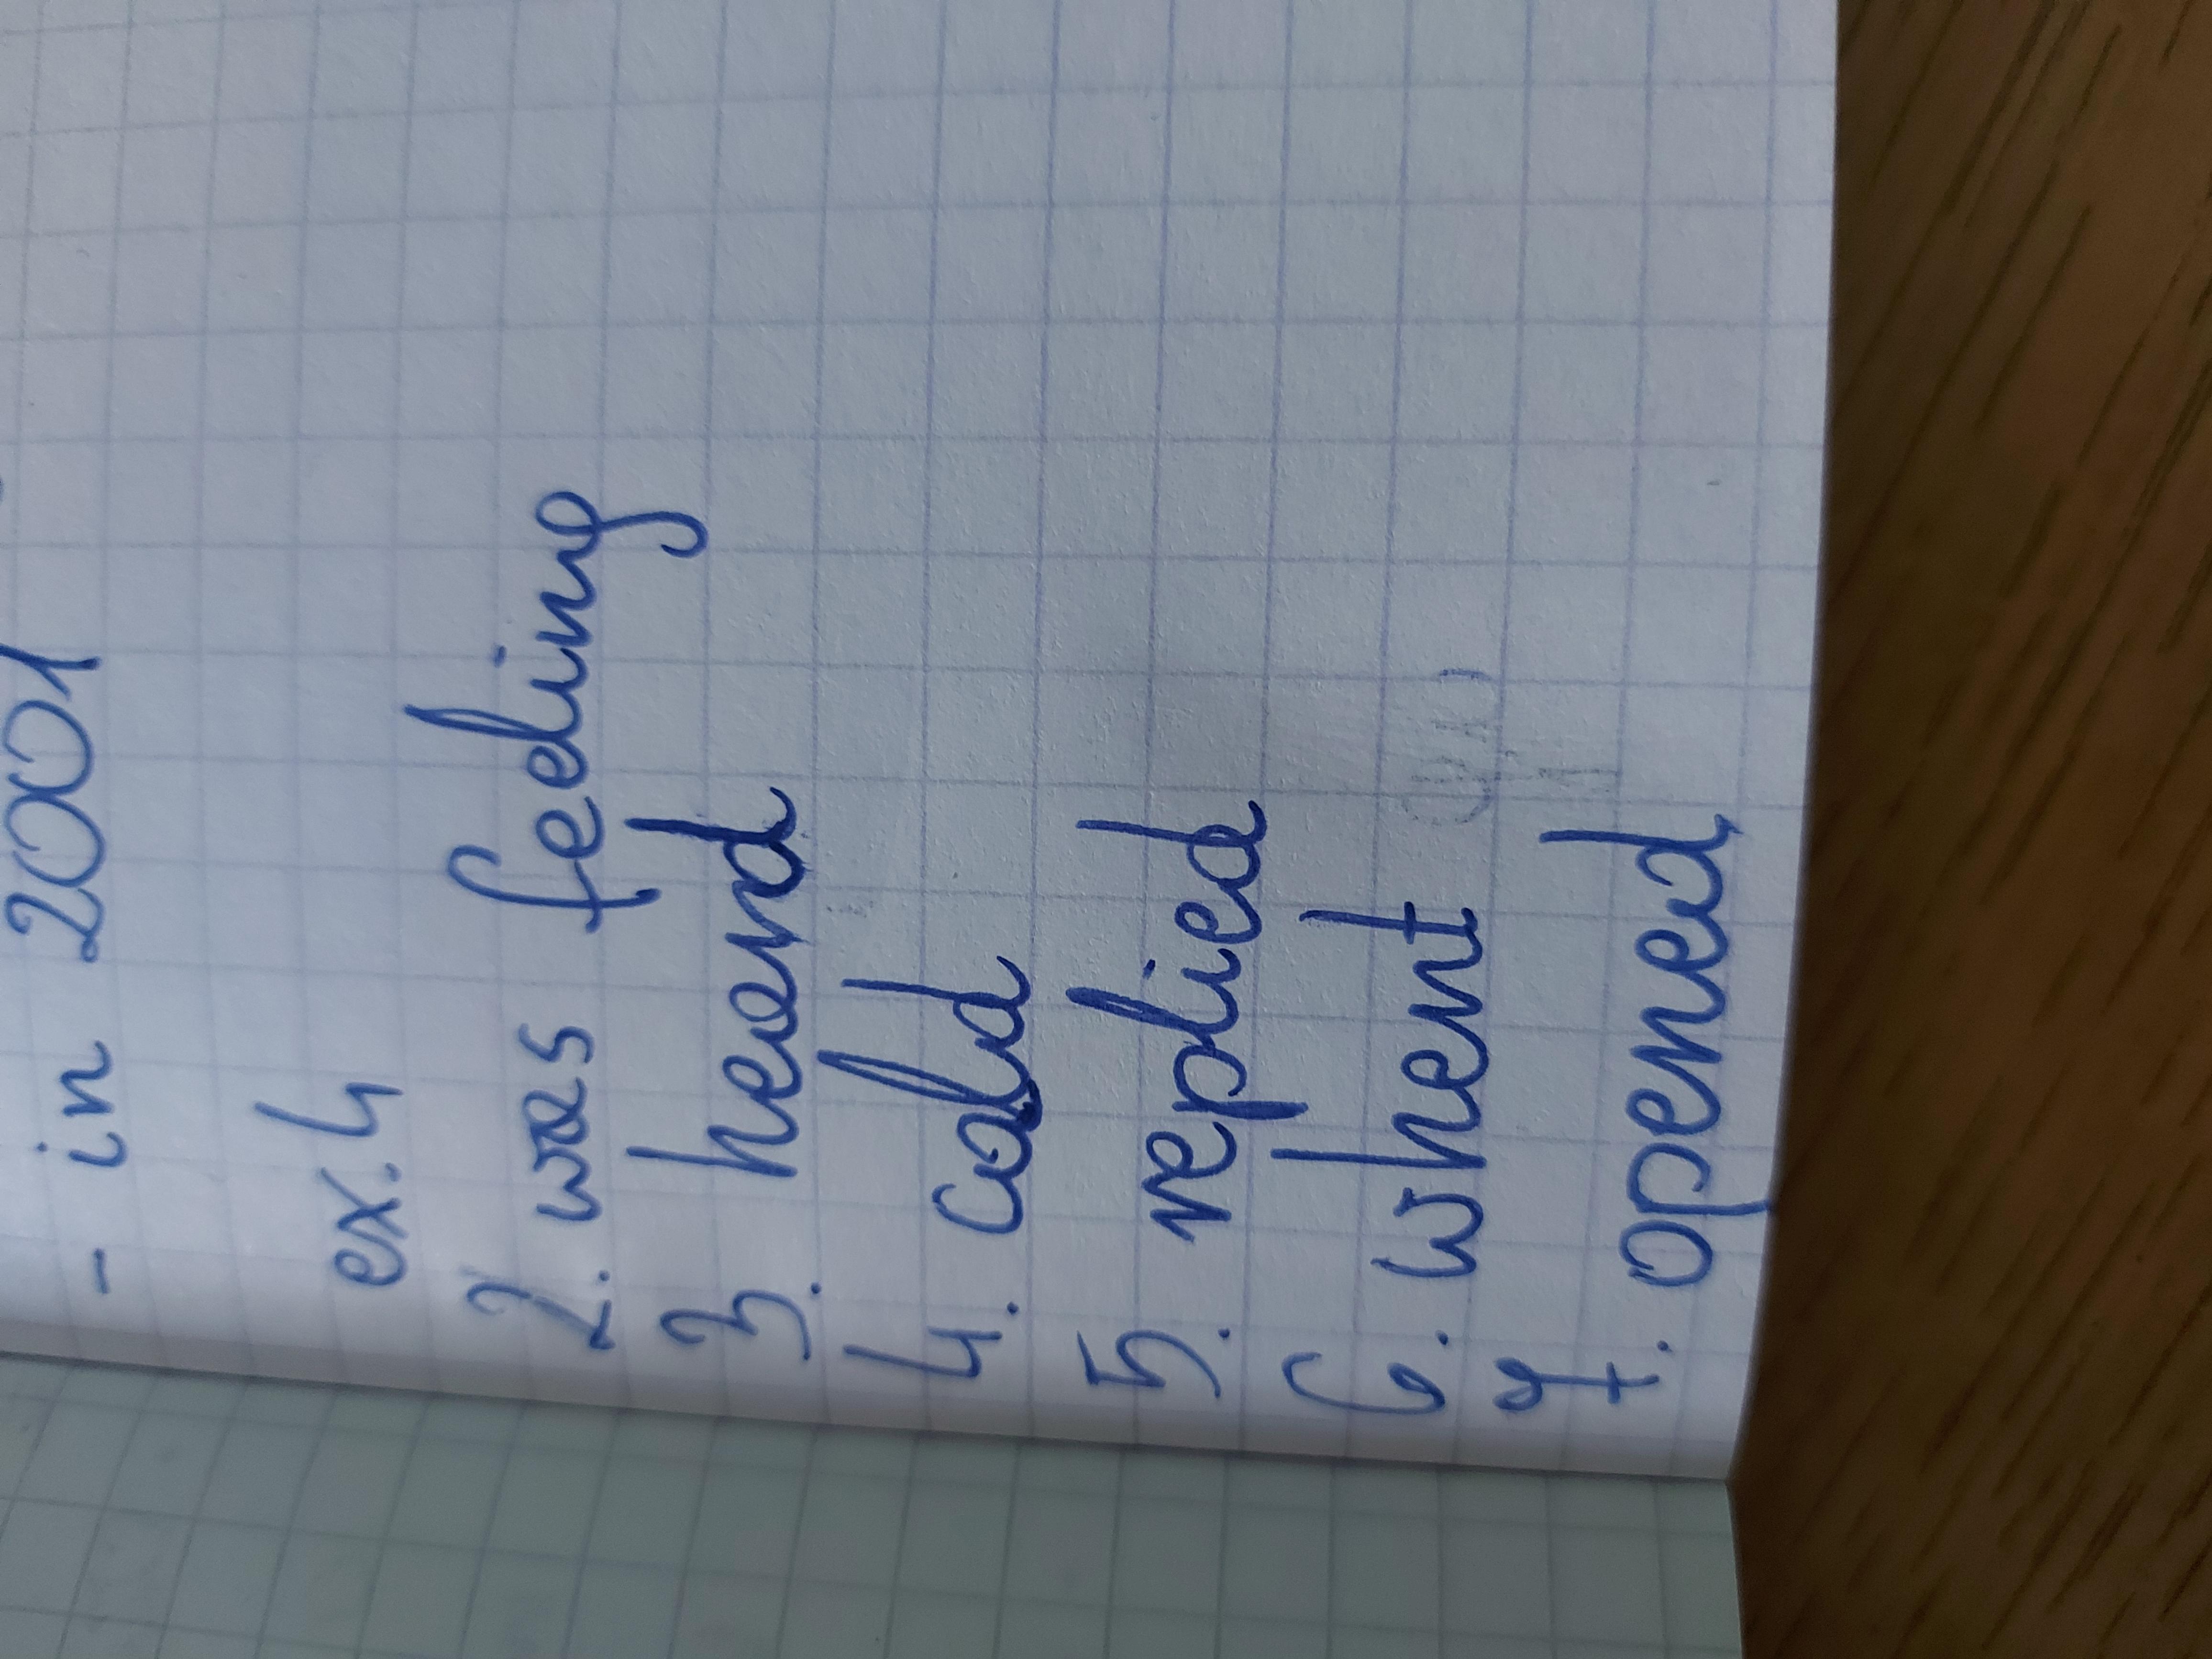 - in 2001
ex. 4
2. was feeling
3. heard
4. cald
5. replied
6. whent
7. opened